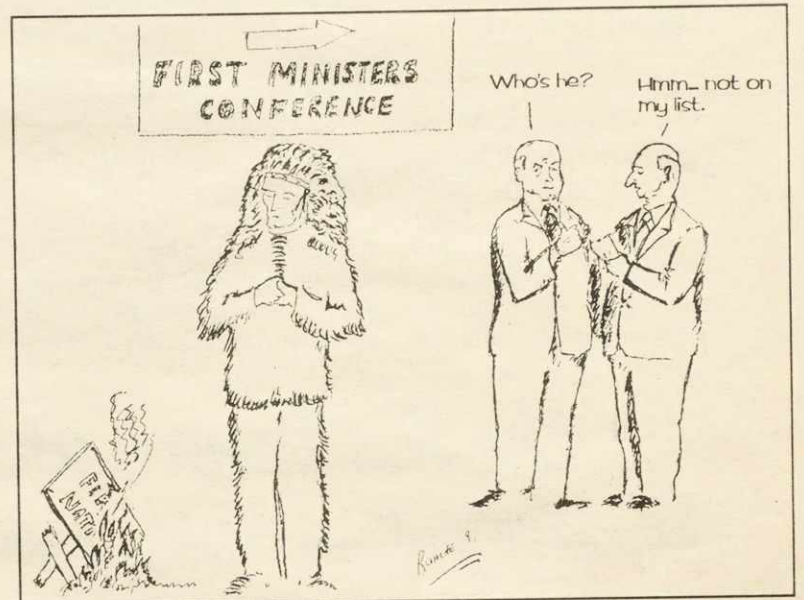 FIRST MINISTERS
CONFERENCE
Who's he?
Hmm_ not on
my list.
FIR
NATI